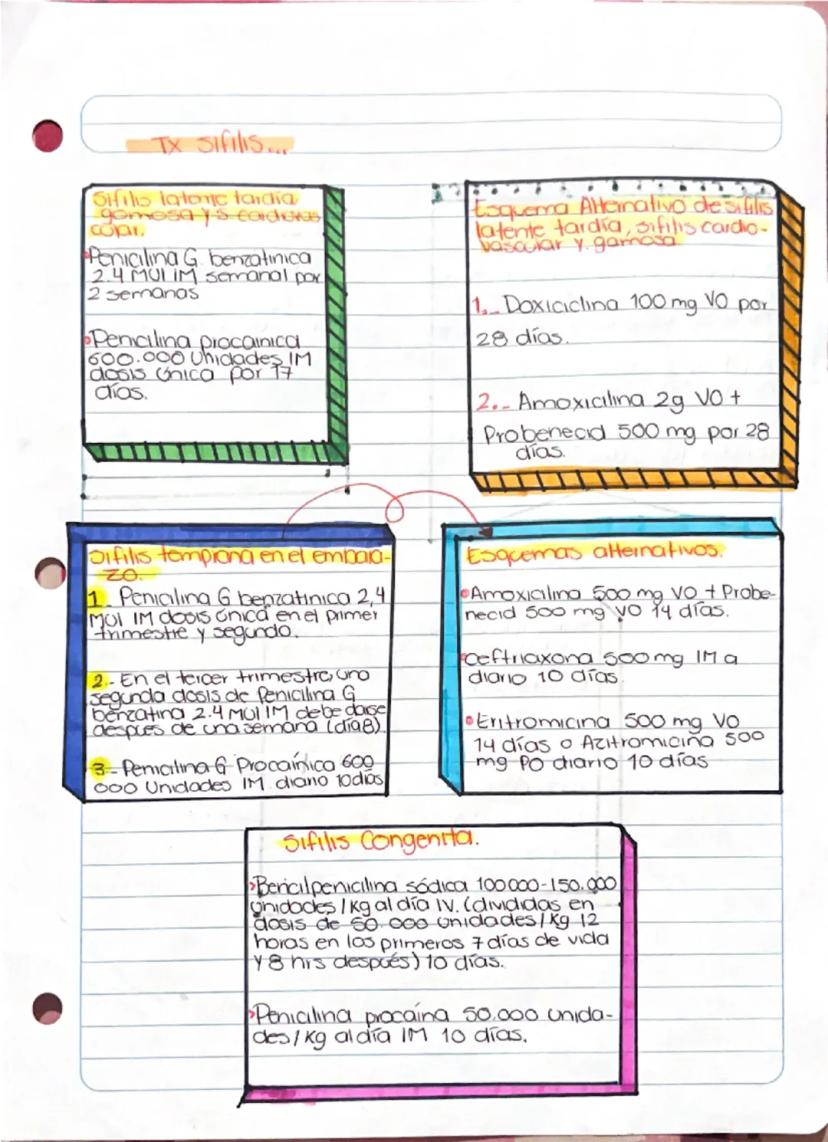 Tx sifilis...
Sifilis latente tardía
gomosa y s cardiovas
cular.
Penicilina G benzatinica
2.4 MUI IM semanal por
2 semanas
Penicilina procainica
600.000 Unidades IM
dosis única por 17
días.
Esquema Alternativo de sifilis
latente tardía, sifilis cardio-
vascular y gomosa
1.- Doxiciclina 100 mg VO por
28 días.
2.- Amoxicilina 2g VO +
Probenecid 500 mg por 28
días.
Sifilis temprana en el embara-
zo.
1. Penicilina G benzatinica 2,4
MUI IM dosis única en el primer
trimestre y segundo.
2.- En el tercer trimestre, una
segunda dosis de Penicilina G
benzatina 2.4 MUI IM debe darse
despues de una semana (día 8)
3.- Penicilina G Procaínica 600
000 Unidades IM diario 10 días
Esquemas alternativos.
Amoxicilina 500 mg VO + Probe-
necid 500 mg VO 14 días.
Ceftriaxona 500 mg IM a
diario 10 días.
Eritromicina 500 mg VO
14 días o Azitromicina 500
mg PO diario 10 días
Sifilis Congenita.
Bencilpenicilina sódica 100 000-150.000
unidades / Kg al día IV. (divididas en
dosis de 50 000 unidades / Kg 12
horas en los primeros 7 días de vida
y 8 hrs después) 10 días.
Penicilina procaína 50.000 unida-
des / Kg al día IM 10 días.